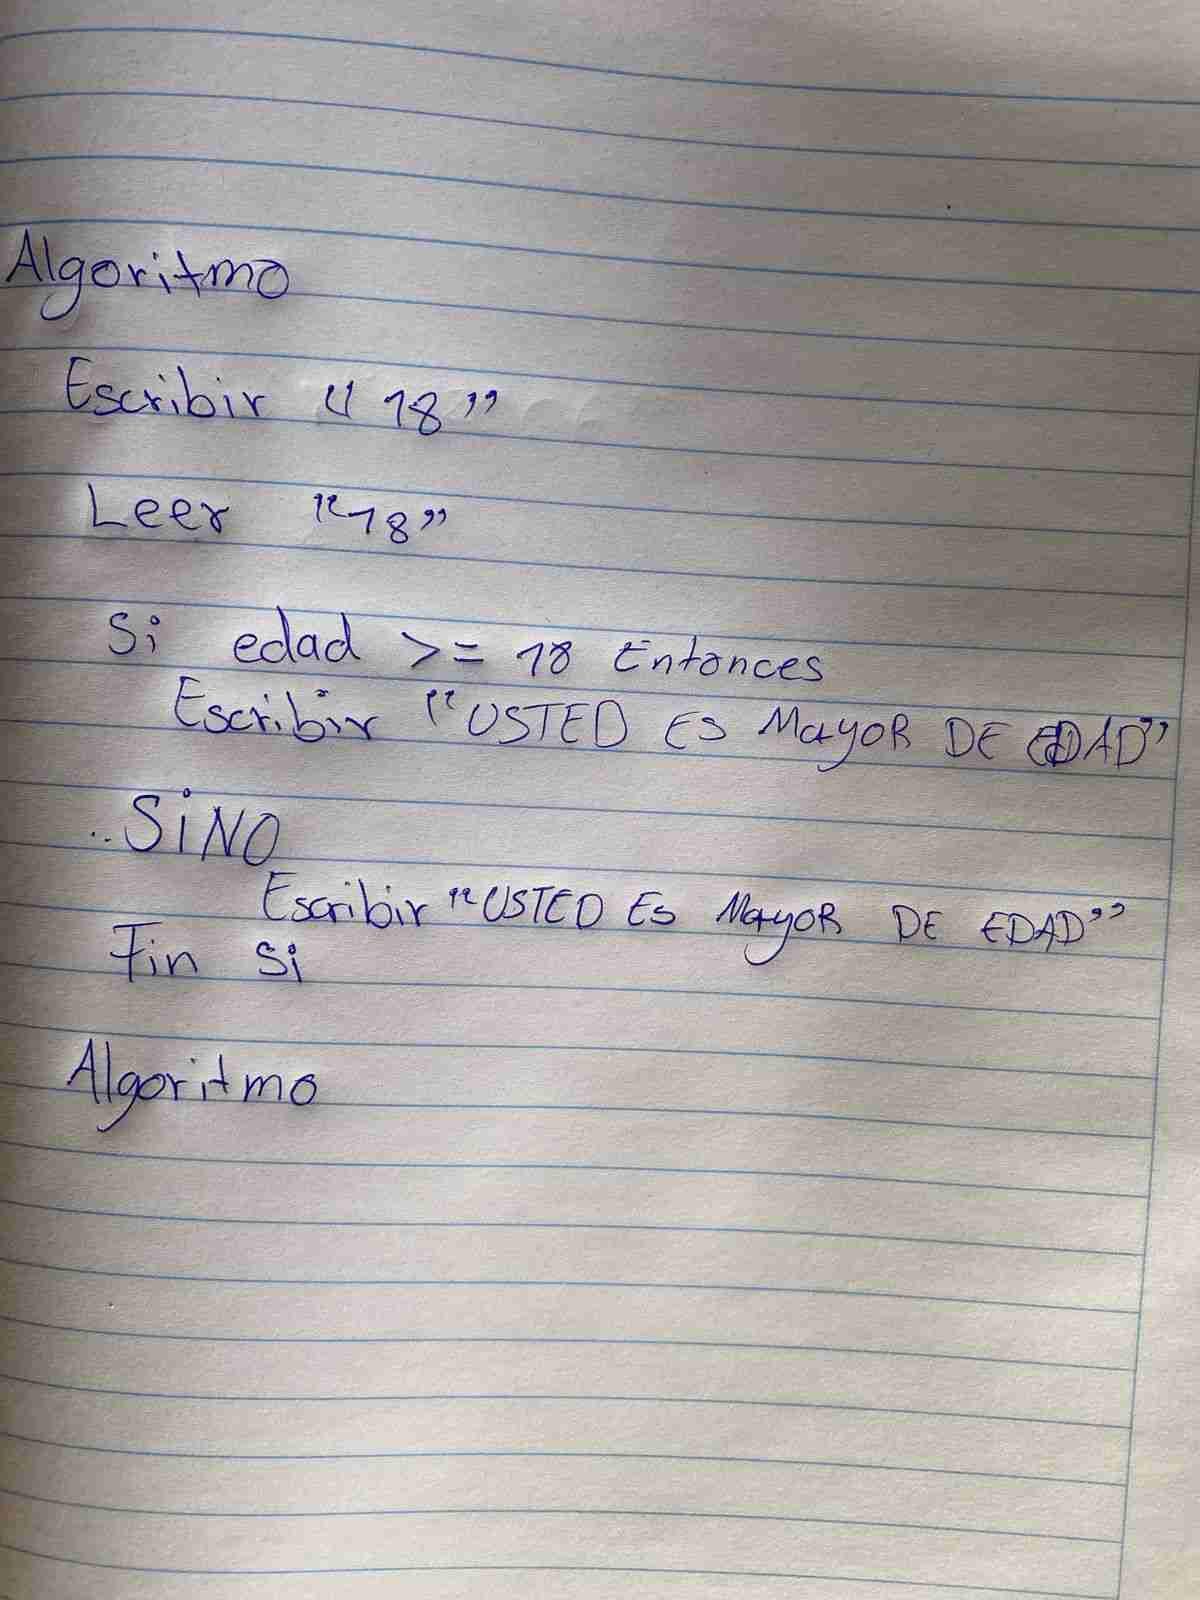 Algoritmo
Escribir "18"
Leer "18"
Si edad >= 18 Entonces
Escribir "USTED ES MAYOR DE EDAD"
SiNO
Escribir "USTED ES MAYOR DE EDAD"
Fin Si
Algoritmo